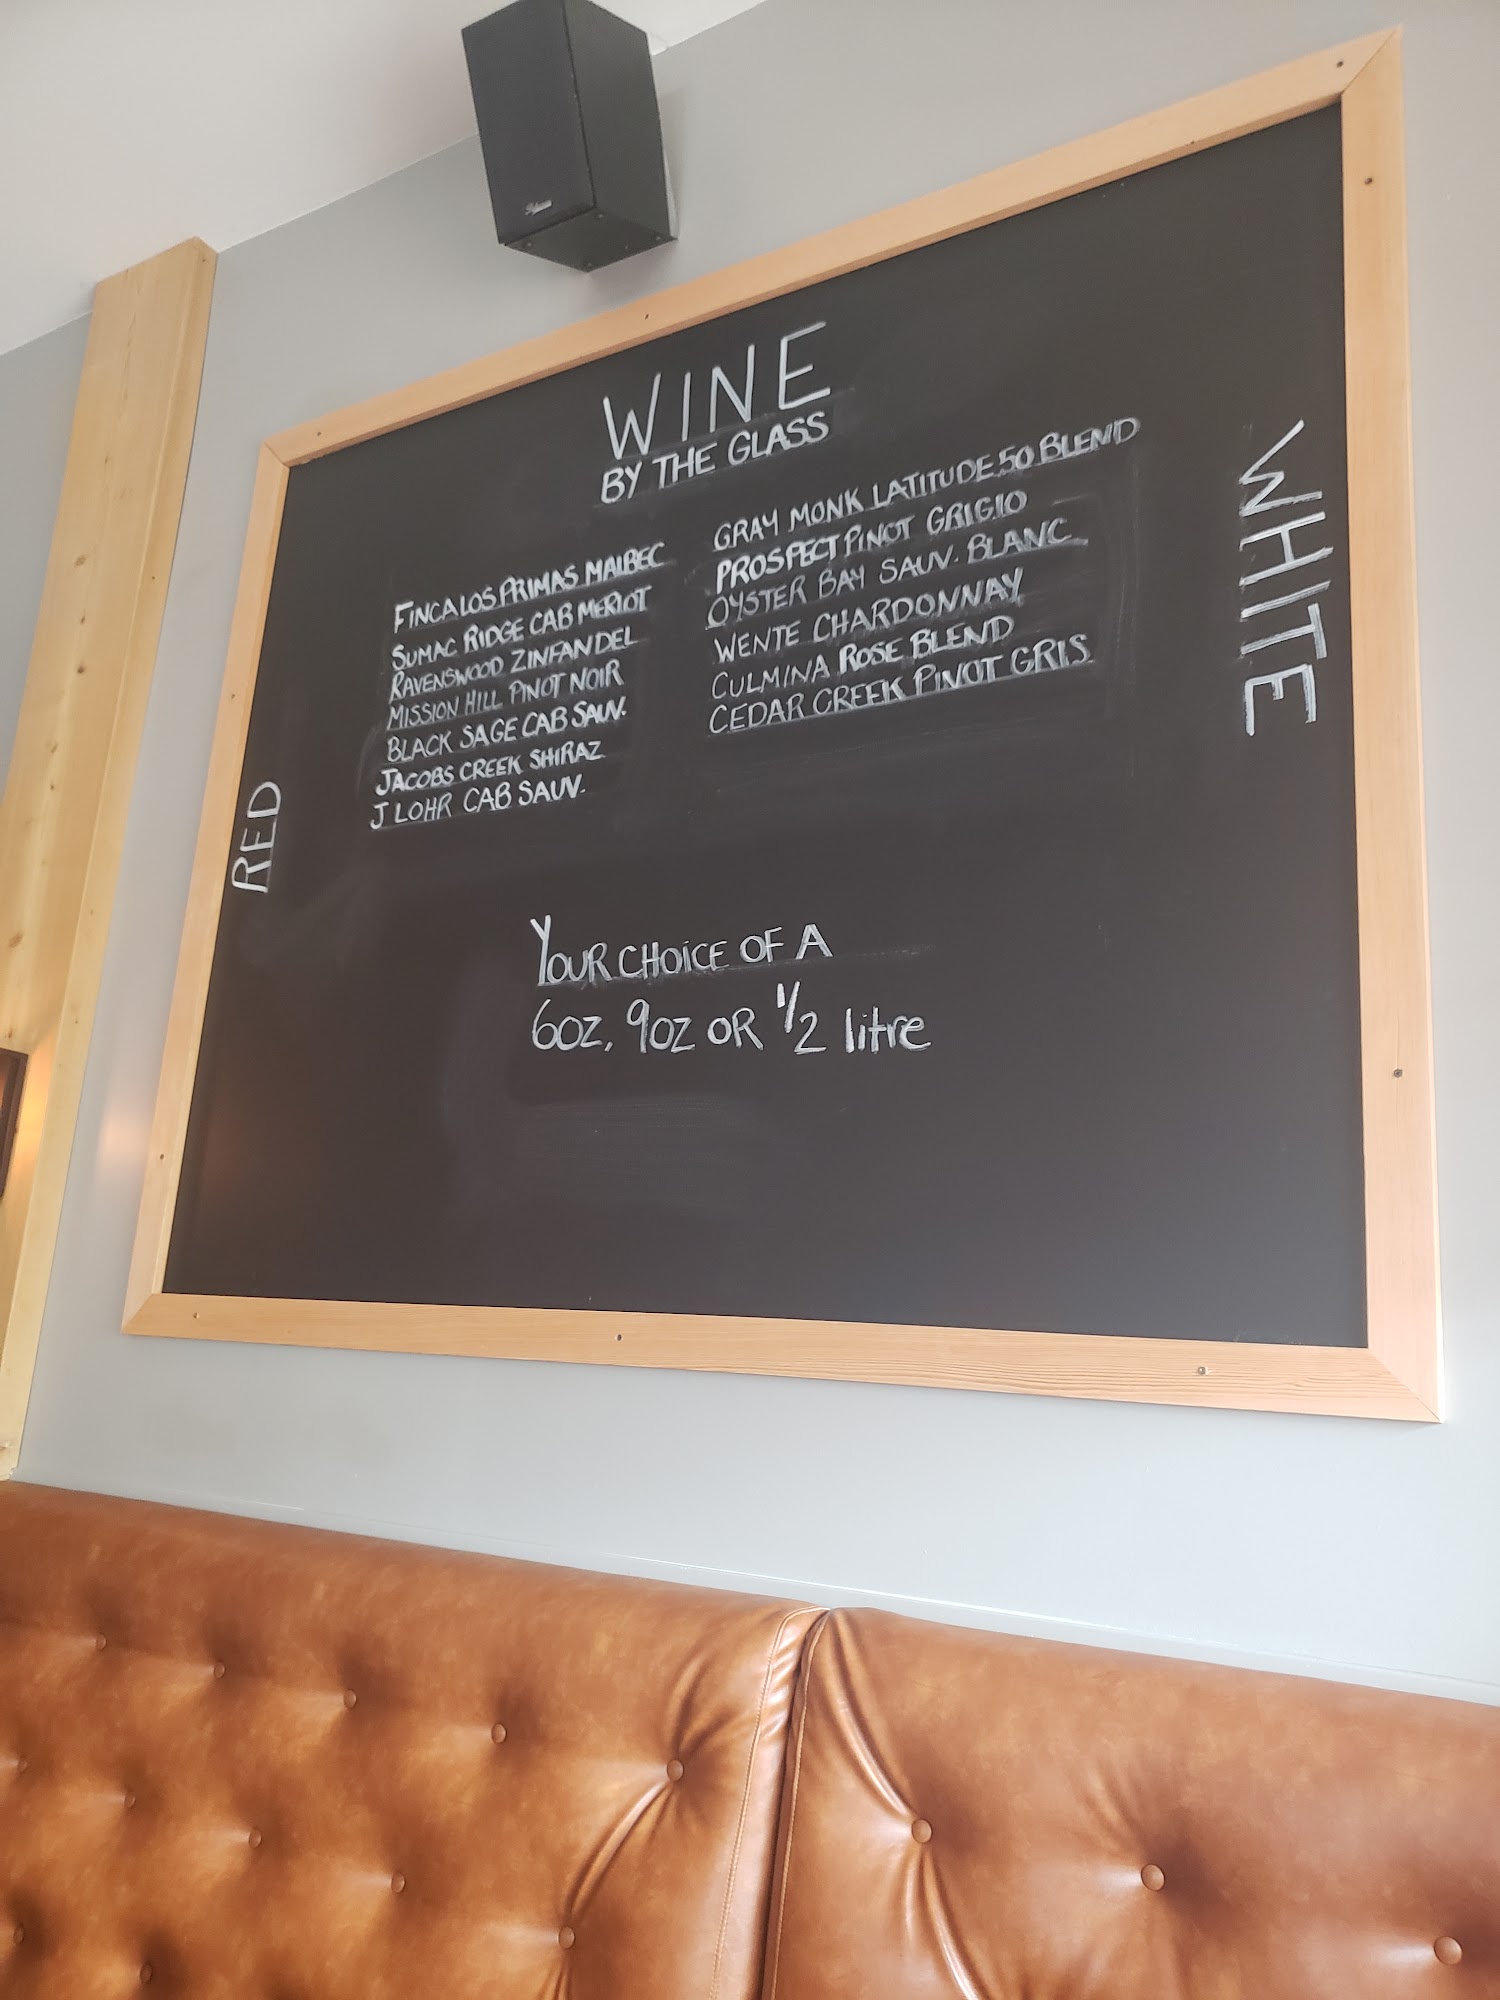 WINE
BY THE GLASS
RED
FINCA LOS PRIMAS MALBEC
SUMAC RIDGE CAB MERLOT
RAVENSWOOD ZINFANDEL
MISSION HILL PINOT NOIR
BLACK SAGE CAB SAUV.
JACOBS CREEK SHIRAZ
J LOHR CAB SAUV.
WHITE
GRAY MONK LATITUDE 50 BLEND
PROSPECT PINOT GRIGIO
OYSTER BAY SAUV. BLANC
WENTE CHARDONNAY
CULMINA ROSE BLEND
CEDAR CREEK PINOT GRIS
YOUR CHOICE OF A
6OZ, 9OZ OR 1/2 litre